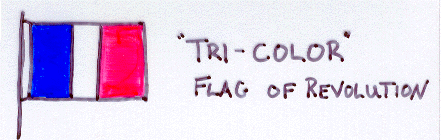 "TRI-COLOR"
FLAG OF REVOLUTION